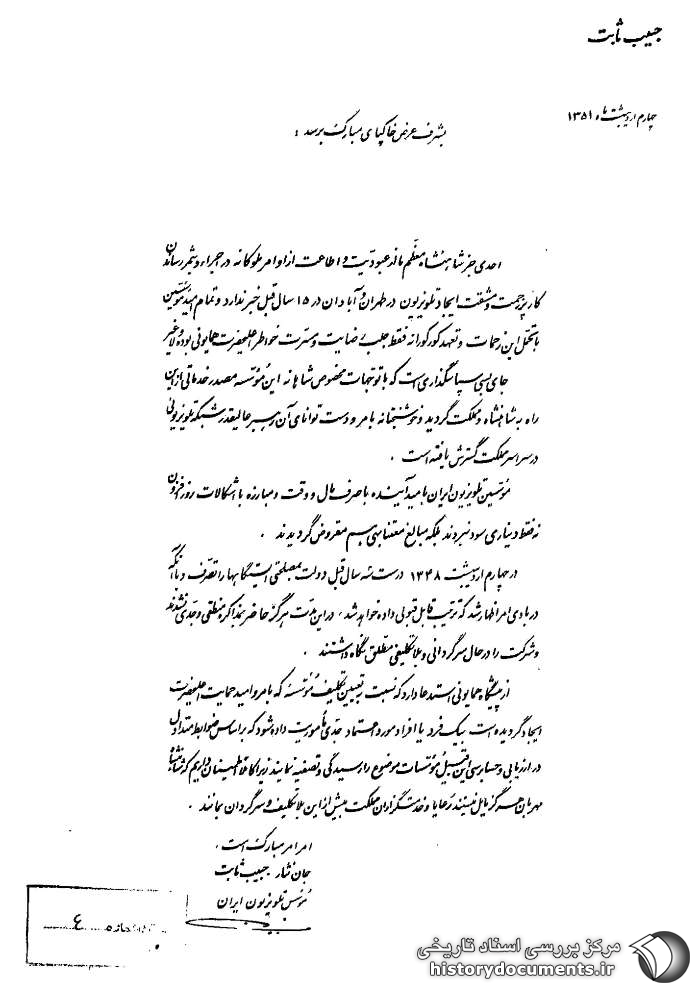 حبیب ثابت
چهارم اردیبهشت ماه ۱۳۵۱
بشرف عرض خاکپای مبارک برسد :
احدی جز شاهنشاه معظم ما از عبودیت و اطاعت از اوامر ملوکانه در اجراء و بثمر رساندن
کار پر زحمت و مشقت ایجاد تلویزیون در طهران و آبادان در ۱۵ سال قبل خبر ندارد و تمام امید مؤسسین
با تحمل این زحمات و تعهد کورکورانه فقط جلب رضایت و مسرت خاطر اعلیحضرت همایونی بوده و لاغیر
جای بسی سپاسگذاری است که با توجهات مخصوص شاهانه این مؤسسه مصدر خدماتی از این
راه به شاهنشاه و مملکت گردید و خوشبختانه با امر و دست توانای آن رهبر عالیقدر شبکه تلویزیونی
در سراسر مملکت گسترش یافته است .
مؤسسین تلویزیون ایران بامید آینده با صرف مال و وقت و مبارزه با اشکالات روزافزون
نه فقط دیناری سود نبردند بلکه مبالغ معتنابهی هم مقروض گردیدند .
در چهارم اردیبهشت ۱۳۴۸ درست سه سال قبل دولت بمصلحتی ایستگاهها را تصرف و با آنکه
در بادی امر اظهار شد که ترتیب قابل قبولی داده خواهد شد ، در این مدت هرگز حاضر بمذاکره منطقی و جدی نشدند
و شرکت را در حال سرگردانی و بلاتکلیفی مطلق نگاه داشتند .
از پیشگاه همایونی استدعا دارد که نسبت به تعیین تکلیف مؤسسه که با امر و امید حمایت اعلیحضرت
ایجاد گردیده است بیک فرد یا افراد مورد اعتماد جدی مأموریت داده شود که بر اساس ضوابط متداول
در ارزیابی و حسابرسی این قبیل مؤسسات موضوع را رسیدگی و تصفیه نمایند زیرا کاملا اطمینان داریم که شاهنشاه
مهربان هرگز مایل نیستند رعایا و خدمتگزاران مملکت بیش از این بلاتکلیف و سرگردان بمانند .
امر امر مبارک است .
جان نثار حبیب ثابت
مؤسس تلویزیون ایران
شماره ۴
مرکز بررسی اسناد تاریخی
historydocuments.ir